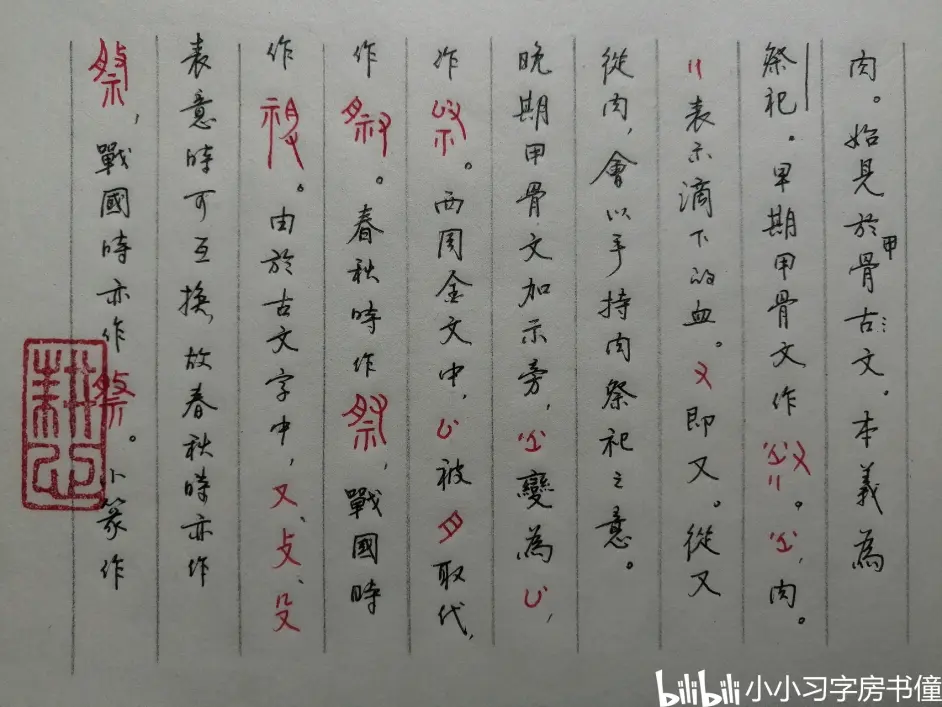 肉。始見於甲骨古文。本義為
祭祀。早期甲骨文作。肉。
表示滴下的血。又即又。從又
從肉,會以手持肉祭祀之意。
晚期甲骨文加示旁,變為,
作。西周金文中,被月取代,
作祭。春秋時作祭,戰國時
作。由於古文字中,又、攴、殳
表意時可互換,故春秋時亦作
祭,戰國時亦作祭。小篆作
耕心
bilibili 小小习字房书僮